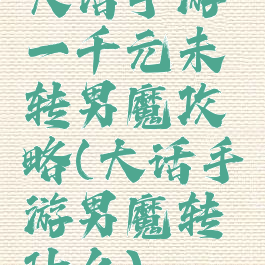 大话手游
一千元未
转男魔攻
略(大话手
游男魔转